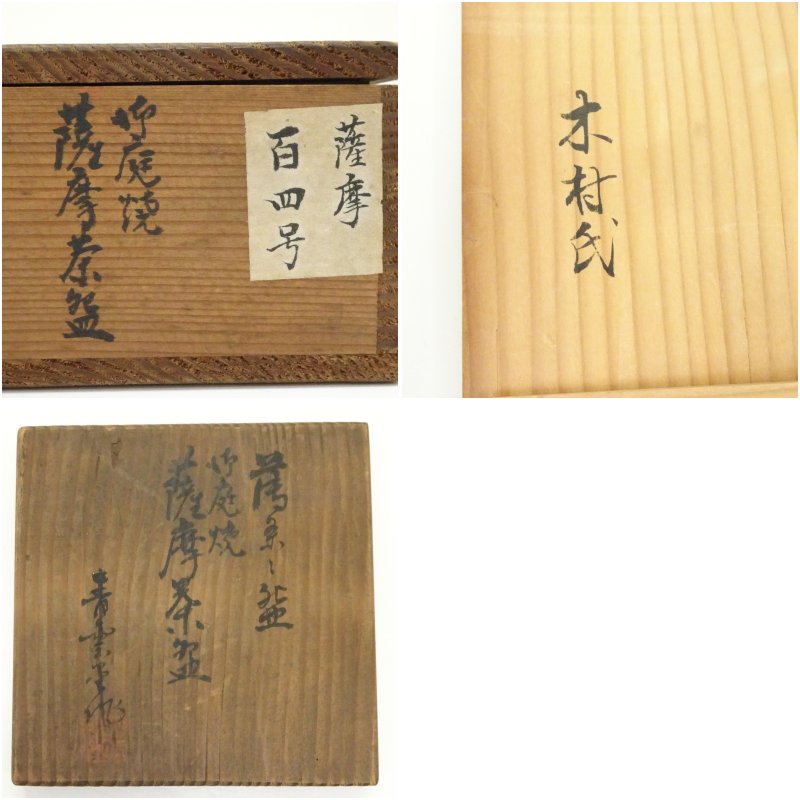 薩摩
百四号
御庭焼
薩摩茶盌
木村氏
御庭焼
薩摩茶盌
青雲堂作